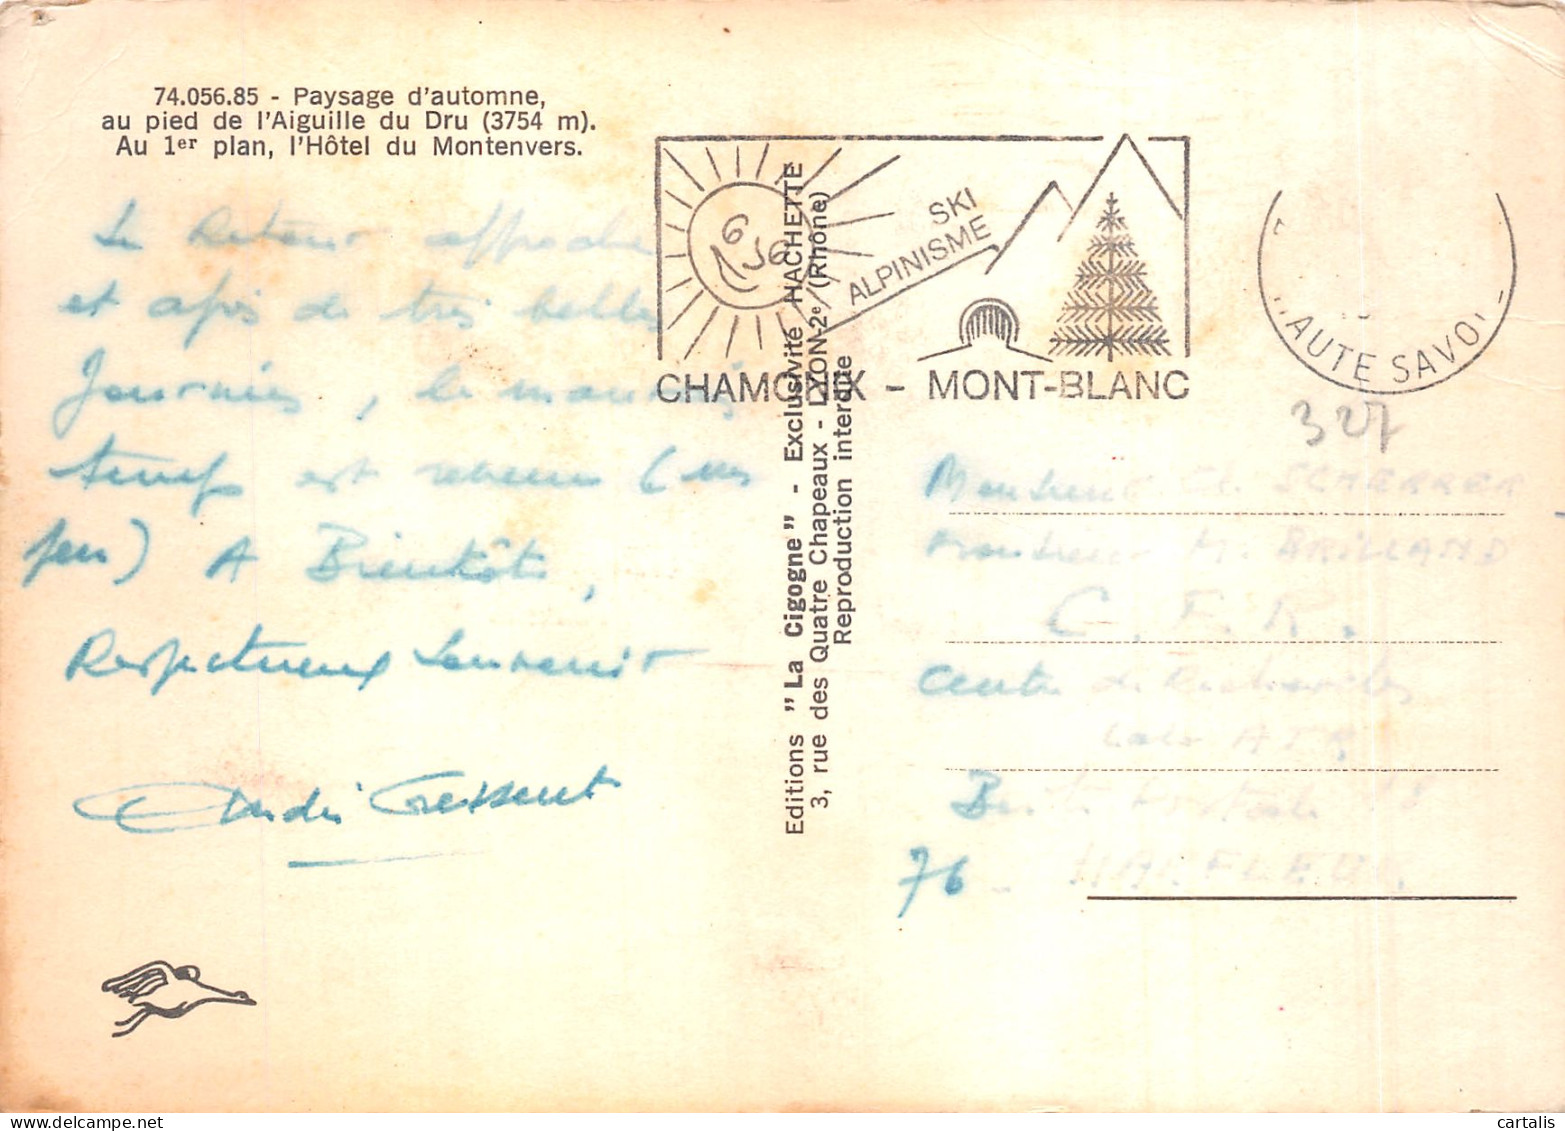 74.056.85 - Paysage d'automne,
au pied de l'Aiguille du Dru (3754 m).
Au 1er plan, l'Hôtel du Montenvers.
Le Retour approche
et après de très belles
Journées, le mauvais
temps est revenu (un
peu) A Bientôt,
Respectueux Souvenir
André
Editions "La Cigogne" - Exclusivité HACHETTE
3, rue des Quatre Chapeaux - LYON-2e (Rhône)
Reproduction interdite
SKI
ALPINISME
CHAMONIX - MONT-BLANC
AUTE SAVO
327
Monsieur Cl. SCHERRER
Monsieur M. BRILLAND
C. F. R.
Centre de Recherches
76 - HARFLEUR
delcampe.net
cartalis